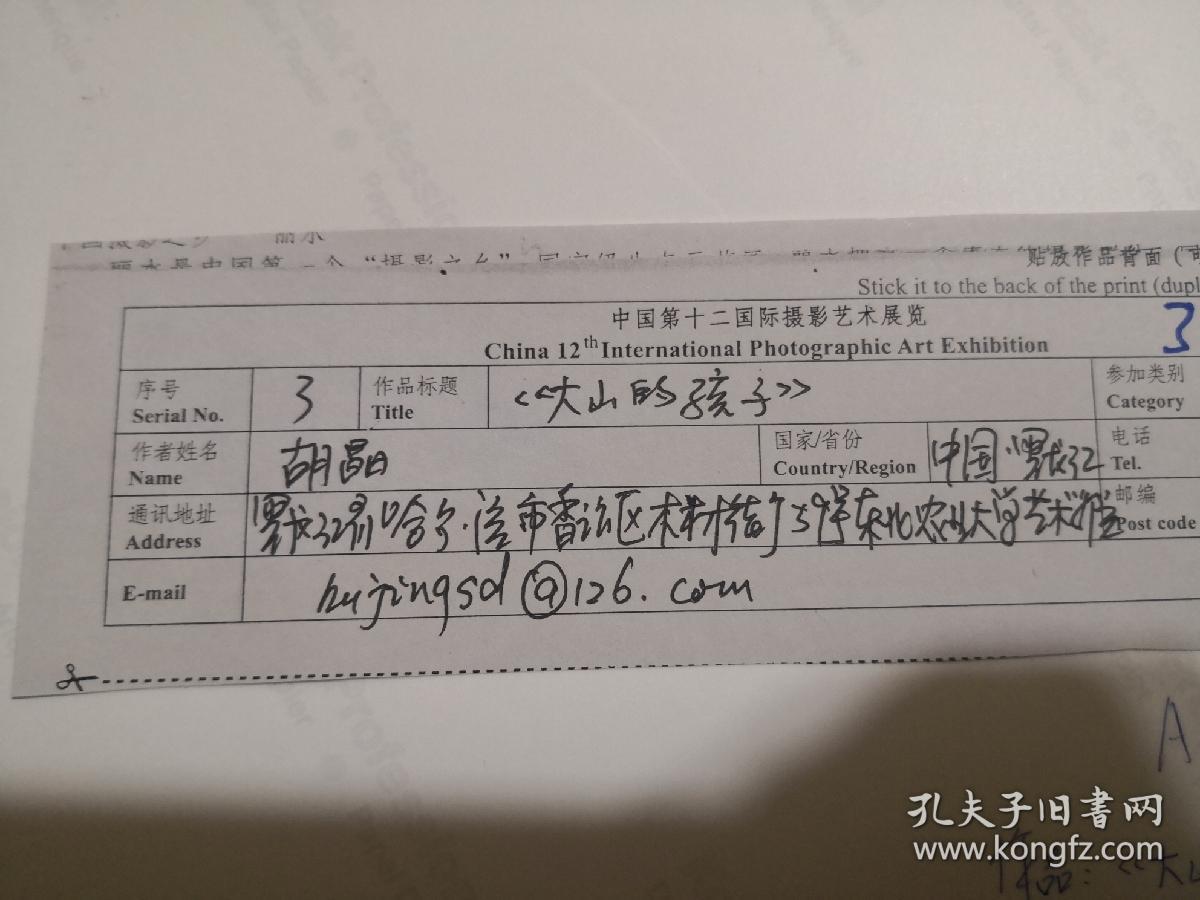 丽水
丽水是中国第一个“摄影之乡”
贴放作品背面（可
Stick it to the back of the print (dupl
中国第十二国际摄影艺术展览
China 12th International Photographic Art Exhibition
3
序号 Serial No. 3 作品标题 Title 《大山的孩子》 参加类别 Category
作者姓名 Name 胡晶 国家/省份 Country/Region 中国·黑龙江 电话 Tel.
通讯地址 Address 黑龙江省哈尔滨市香坊区木材街59号东北农业大学艺术学院 邮编 Post code
E-mail hujingsd@126.com
A
作品：《大山
孔夫子旧书网
www.kongfz.com